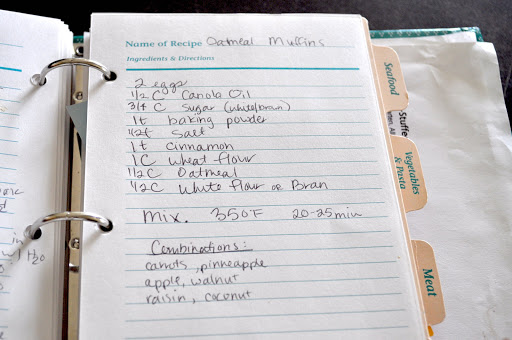 Name of Recipe Oatmeal Muffins
Ingredients & Directions
2 eggs
1/2 C Canola Oil
3/4 C Sugar (white/brown)
1t baking powder
1/2t Salt
1t cinnamon
1C Wheat flour
1/2C Oatmeal
1/2C White flour or Bran
Mix. 350°F 20-25min
Combinations:
carrots, pinneapple
apple, walnut
raisin, coconut
Seafood
Stuffe
Vegetables
& Pasta
Meat
in
w/ H2O